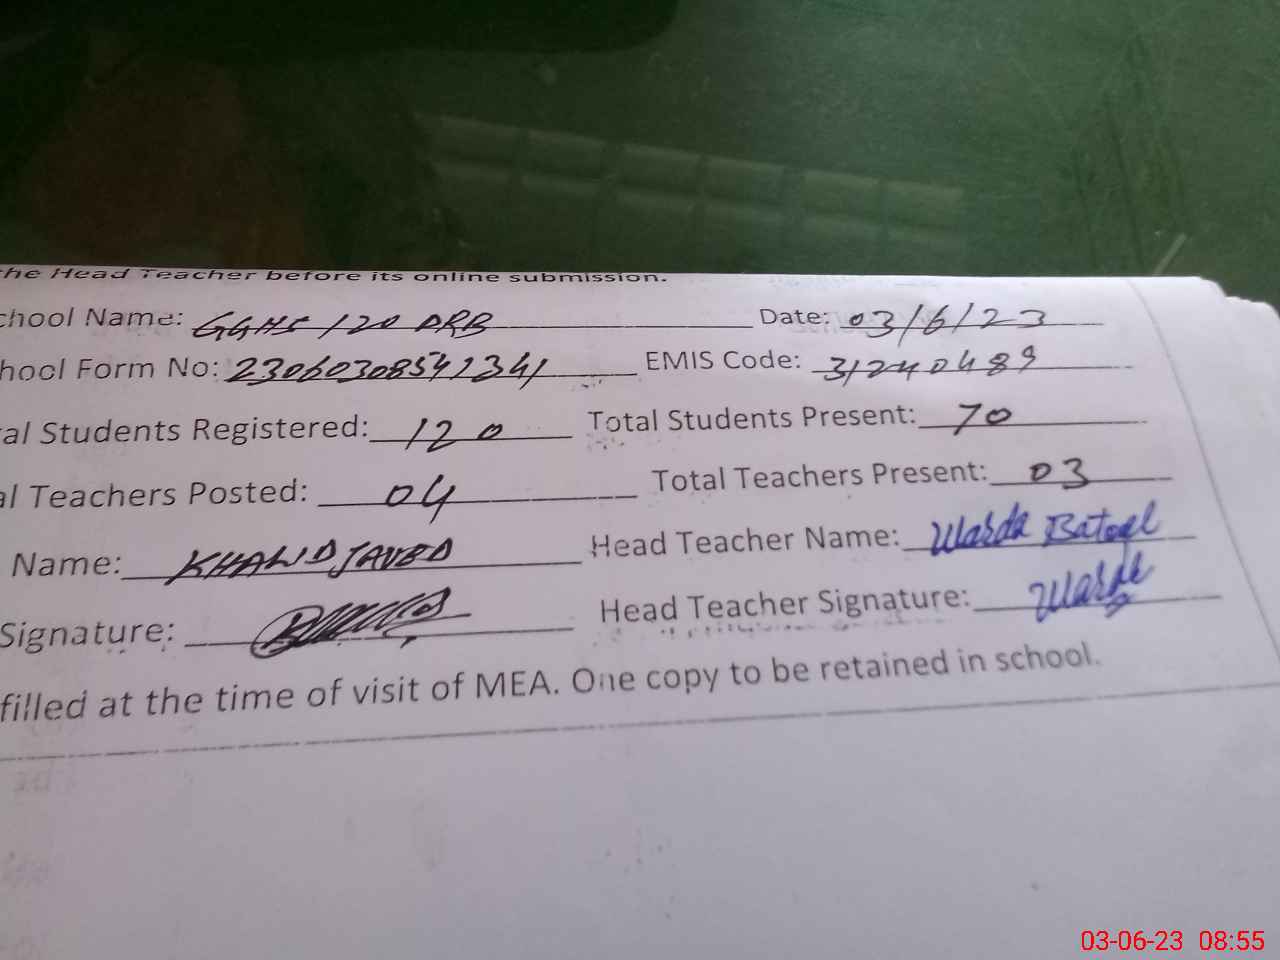 the Head Teacher before its online submission.
chool Name: GGHS 120 DRB Date: 03/6/23
hool Form No: 23060308541341 EMIS Code: 31240489
al Students Registered: 120 Total Students Present: 70
al Teachers Posted: 04 Total Teachers Present: 03
Name: KHALID JAVED Head Teacher Name: Warda Batool
Signature: Head Teacher Signature: Warda
filled at the time of visit of MEA. One copy to be retained in school.
03-06-23 08:55